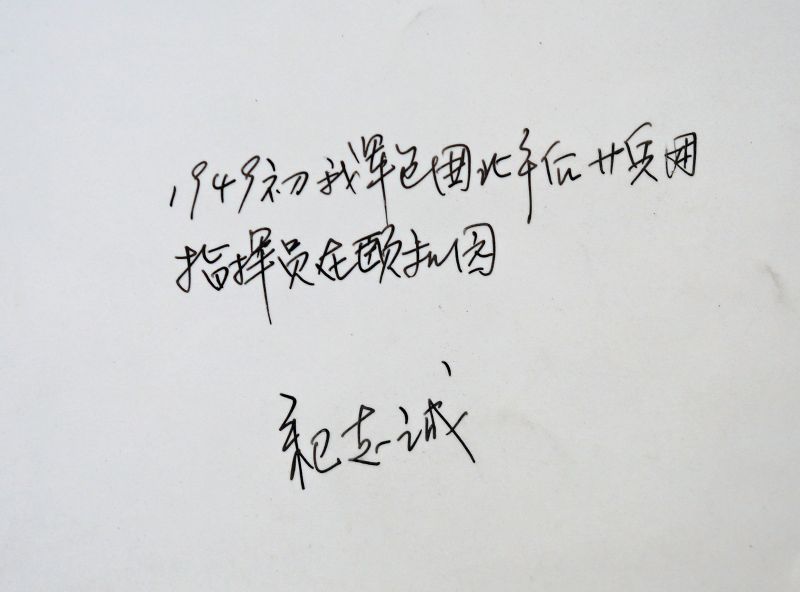 1949初我军包围北平后廿兵团
指挥员在颐和园
志诚